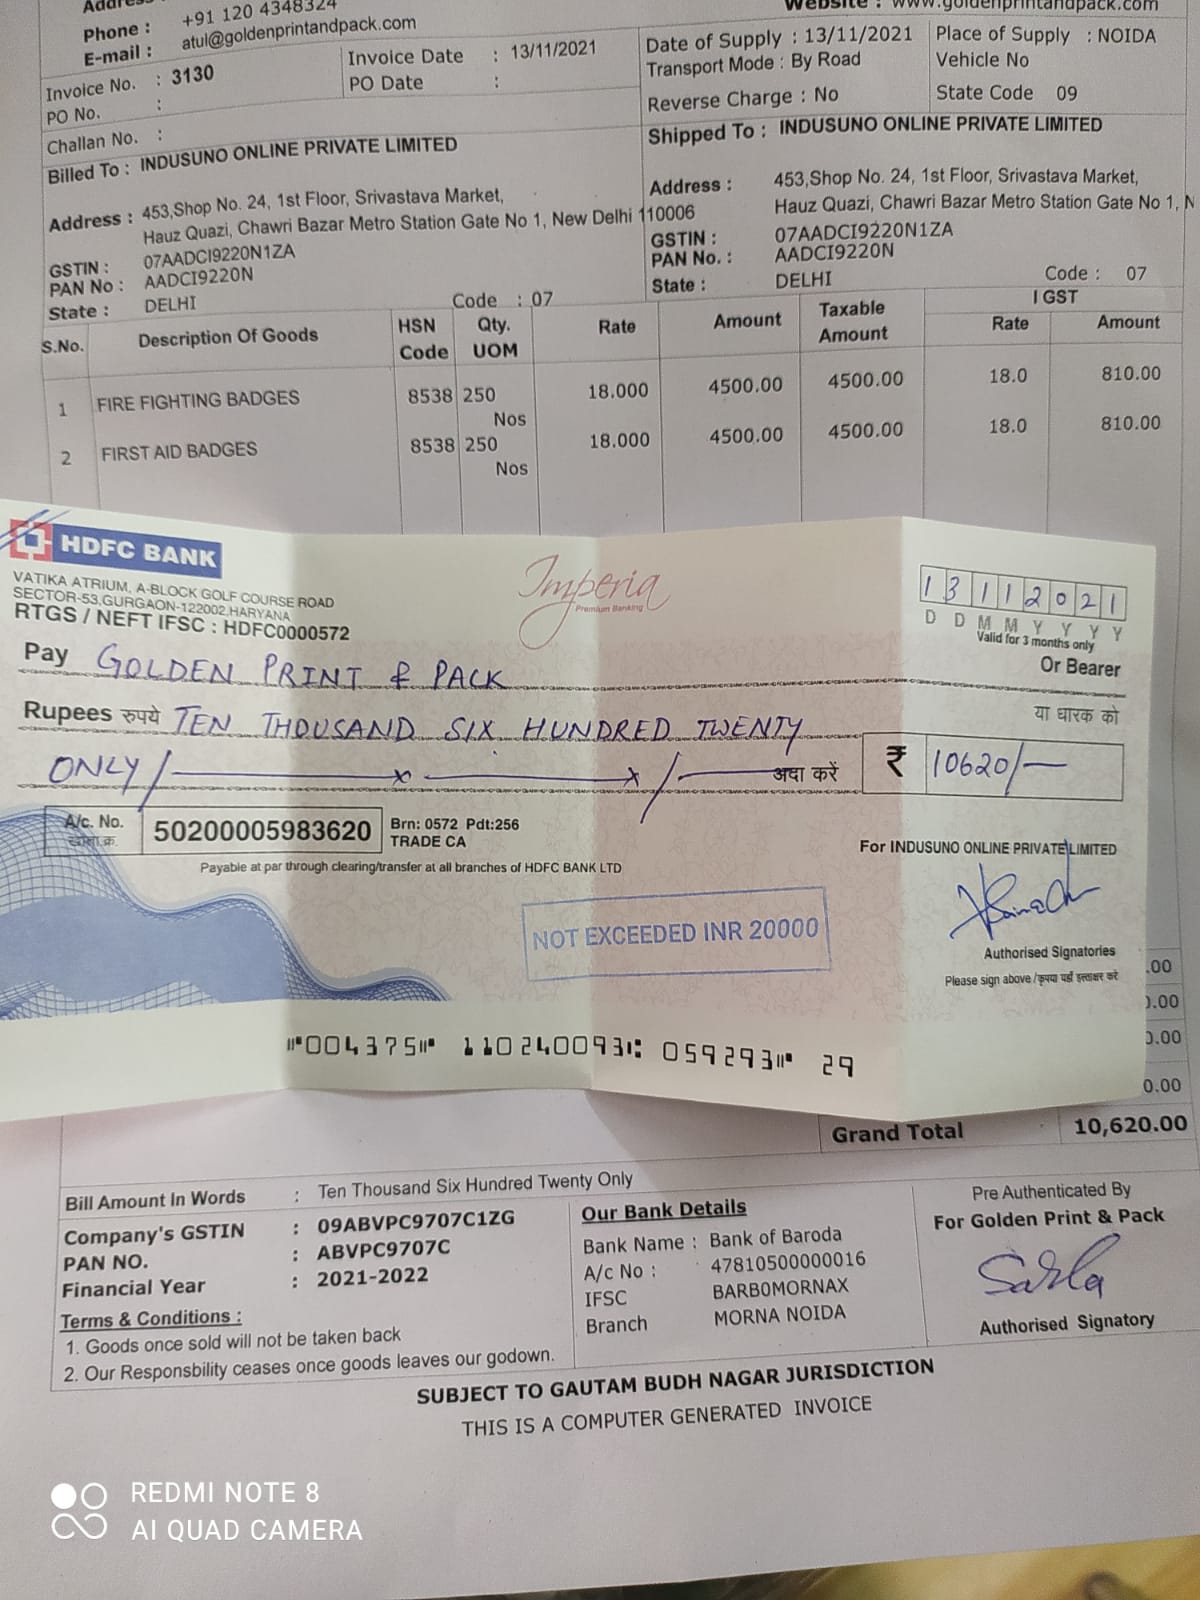 Address
Phone : +91 120 4348324
E-mail : atul@goldenprintandpack.com
Website : www.goldenprintandpack.com
Invoice No. : 3130
PO No. :
Challan No. :
Invoice Date : 13/11/2021
PO Date :
Date of Supply : 13/11/2021
Transport Mode : By Road
Reverse Charge : No
Place of Supply : NOIDA
Vehicle No
State Code 09
Billed To : INDUSUNO ONLINE PRIVATE LIMITED
Address : 453,Shop No. 24, 1st Floor, Srivastava Market,
Hauz Quazi, Chawri Bazar Metro Station Gate No 1, New Delhi 110006
GSTIN : 07AADCI9220N1ZA
PAN No : AADCI9220N
State : DELHI Code : 07
Shipped To : INDUSUNO ONLINE PRIVATE LIMITED
Address : 453,Shop No. 24, 1st Floor, Srivastava Market,
Hauz Quazi, Chawri Bazar Metro Station Gate No 1, N
GSTIN : 07AADCI9220N1ZA
PAN No. : AADCI9220N
State : DELHI Code : 07
S.No. Description Of Goods HSN Code Qty. UOM Rate Amount Taxable Amount IGST Rate Amount
1 FIRE FIGHTING BADGES 8538 250 Nos 18.000 4500.00 4500.00 18.0 810.00
2 FIRST AID BADGES 8538 250 Nos 18.000 4500.00 4500.00 18.0 810.00
HDFC BANK
VATIKA ATRIUM, A-BLOCK GOLF COURSE ROAD
SECTOR-53,GURGAON-122002,HARYANA
RTGS / NEFT IFSC : HDFC0000572
Imperia
Premium Banking
13112021
D D M M Y Y Y Y
Valid for 3 months only
Pay GOLDEN PRINT & PACK
Or Bearer
या धारक को
Rupees रुपये TEN THOUSAND SIX HUNDRED TWENTY
ONLY/ अदा करें ₹ 10620/-
A/c. No. 50200005983620
खाता क्र.
Brn: 0572 Pdt:256
TRADE CA
Payable at par through clearing/transfer at all branches of HDFC BANK LTD
For INDUSUNO ONLINE PRIVATE LIMITED
NOT EXCEEDED INR 20000
Authorised Signatories
Please sign above / कृपया यहाँ हस्ताक्षर करें
⑈004375⑈ 110240093⑆ 059293⑈ 29
.00
0.00
0.00
0.00
Grand Total 10,620.00
Bill Amount In Words : Ten Thousand Six Hundred Twenty Only
Company's GSTIN : 09ABVPC9707C1ZG
PAN NO. : ABVPC9707C
Financial Year : 2021-2022
Terms & Conditions :
1. Goods once sold will not be taken back
2. Our Responsbility ceases once goods leaves our godown.
Our Bank Details
Bank Name : Bank of Baroda
A/c No : 47810500000016
IFSC BARB0MORNAX
Branch MORNA NOIDA
Pre Authenticated By
For Golden Print & Pack
Sarla
Authorised Signatory
SUBJECT TO GAUTAM BUDH NAGAR JURISDICTION
THIS IS A COMPUTER GENERATED INVOICE
REDMI NOTE 8
AI QUAD CAMERA